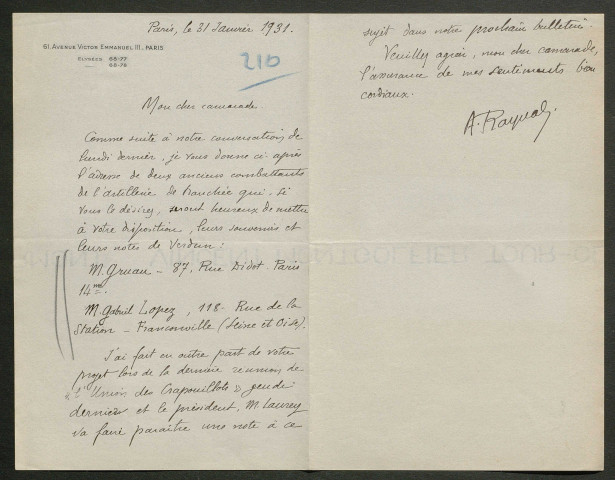 Paris, le 31 Janvier 1931.
61, AVENUE VICTOR EMMANUEL III, PARIS
ELYSÉES 66-77
66-78
210
Mon cher camarade.
Comme suite à notre conversation de
lundi dernier, je vous donne ci-après
l'adresse de deux anciens combattants
de l'artillerie de tranchée qui, si
vous le désirez, seront heureux de mettre
à votre disposition, leurs souvenirs et
leurs notes de Verdun :
M. Gruau - 87, Rue Didot Paris
14me.
M. Gabriel Lopez, 118. Rue de la
Station - Franconville (Seine et Oise).
J'ai fait en outre part de votre
projet lors de la dernière réunion de
"L'Union des Crapouillots" jeudi
dernier et le président, M. Laurey
va faire paraître une note à ce
sujet dans notre prochain bulletin.
Veuillez agréer, mon cher camarade,
l'assurance de mes sentiments bien
cordiaux.
A. Raynal